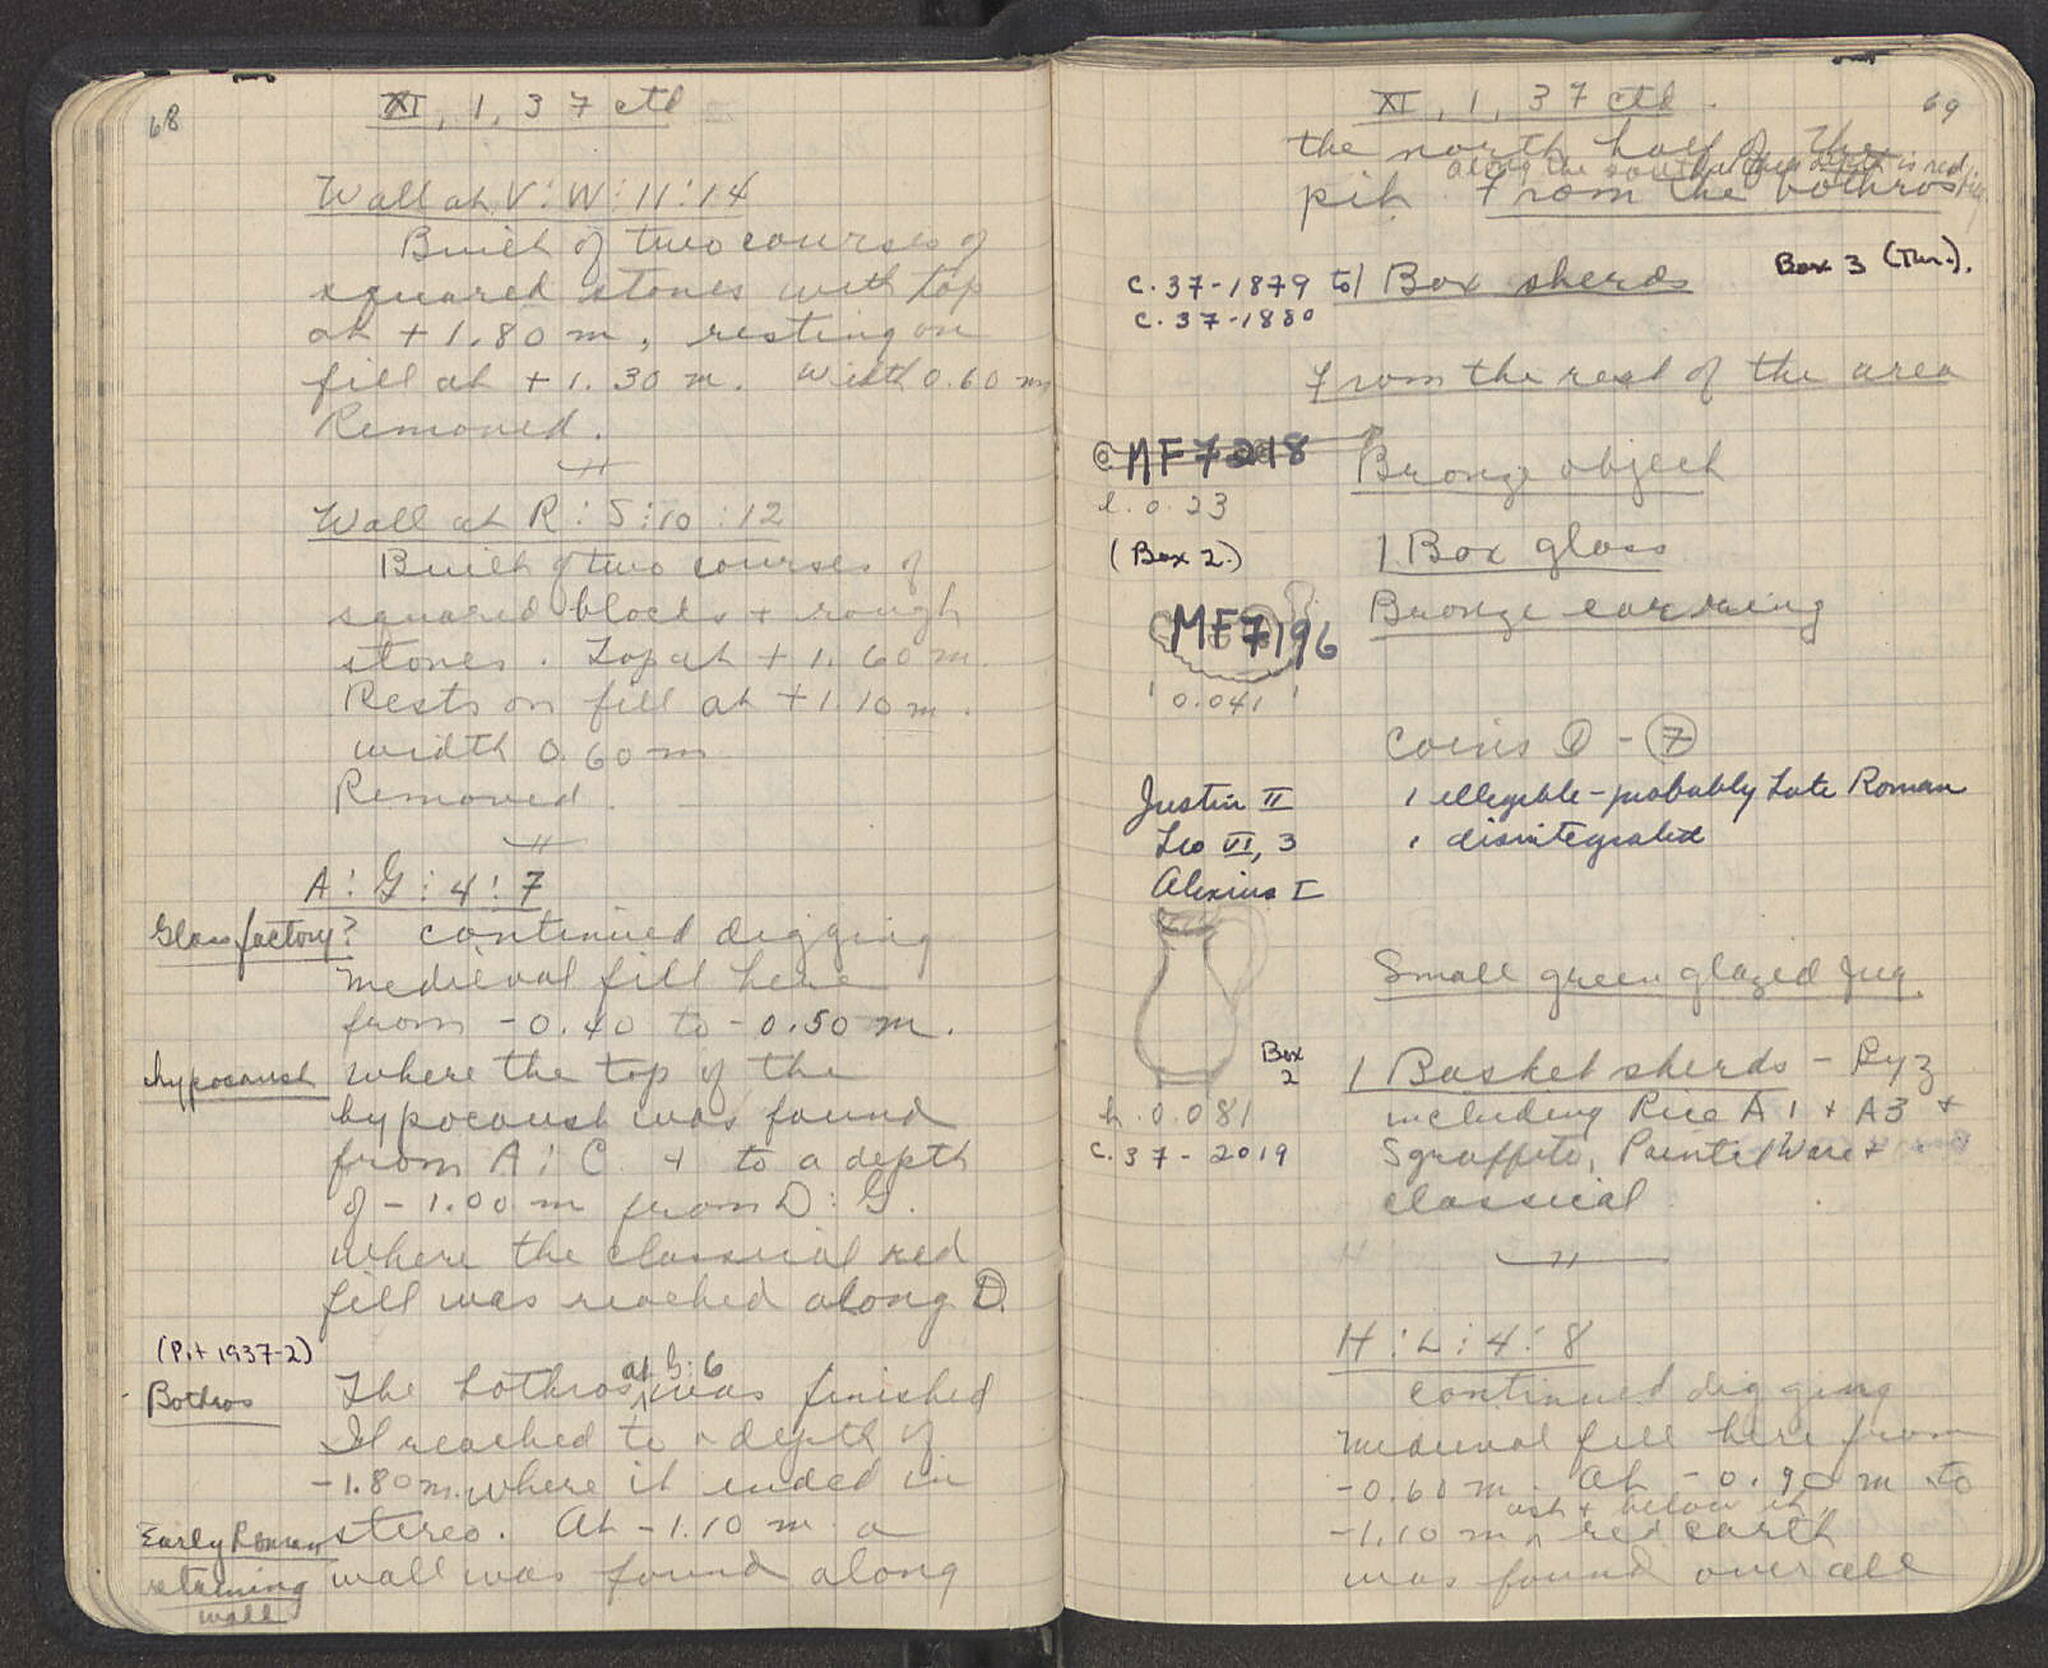 68
XI, 1, 37 ctd
Wall at V:W:11:14
Built of two courses of
squared stones with top
at + 1.80 m, resting on
fill at + 1.30 m. Width 0.60 m
Removed.
Wall at R:S:10:12
Built of two courses of
squared blocks + rough
stones. Top at + 1.60 m.
Rests on fill at + 1.10 m.
width 0.60 m
Removed.
A:G:4:7
Glass factory? continued digging
medieval fill here
from -0.40 to -0.50 m.
hypocaust where the top of the
hypocaust was found
from A:C 4 to a depth
of -1.00 m from D:G.
where the classical red
fill was reached along D.
(Pit 1937-2)
Bothros The bothros at G:6 was finished
It reached to a depth of
-1.80 m. where it ended in
stereo. At -1.10 m a
Early Roman retaining wall
wall was found along
69
XI, 1, 37 ctd.
the north half of the
along the south at this depth is red
pit. From the bothros
C.37-1879 to 1 Box sherds Box 3 (Thr.).
C.37-1880
From the rest of the area
MF 7218 Bronze object
l. 0.23
(Box 2.) 1 Box glass
MF 7196 Bronze earring
0.041
Coins 1 - 7
Justin II 1 illegible - probably Late Roman
Leo VI, 3 1 disintegrated
Alexius I
Small green glazed jug.
Box 2 1 Basket sherds - Byz
h. 0.081 including Rice A1 + A3 +
C.37-2019 Sgraffito, Painted Ware +
classical
H:L:4:8
continued digging
medieval fill here from
-0.60 m. At -0.90 m to
ash + below it
-1.10 m red earth
was found over all